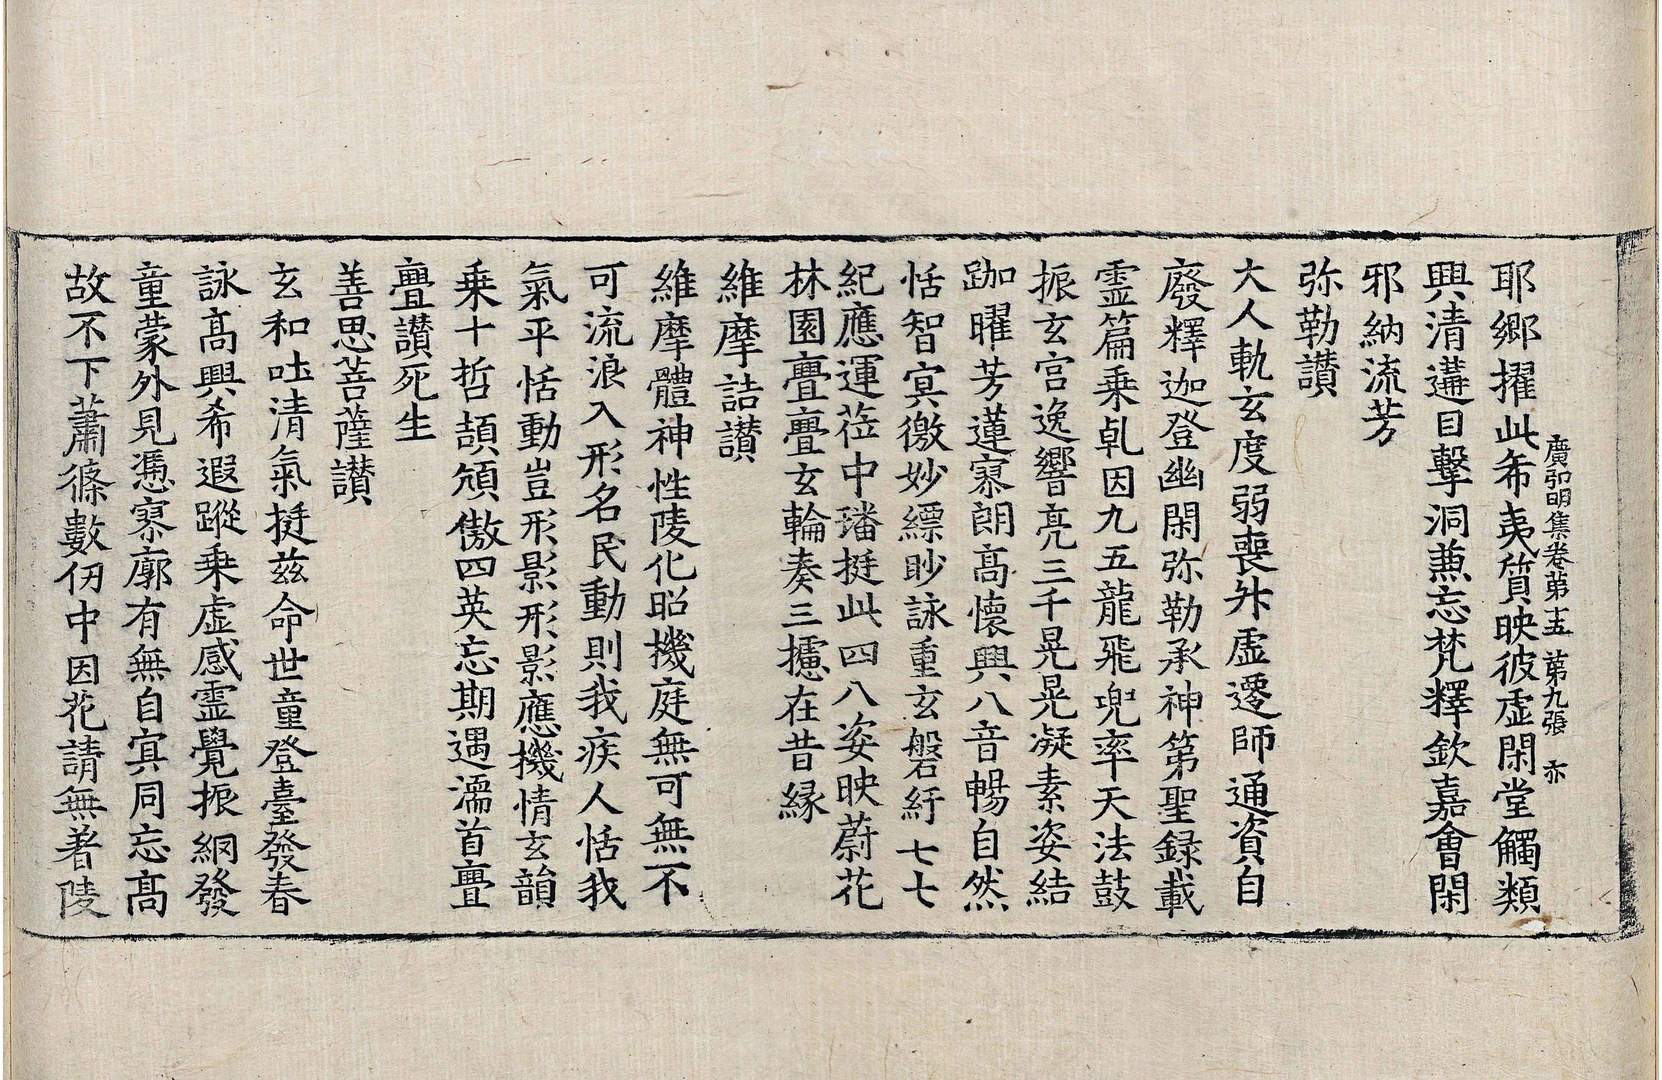 耶鄉擢此希夷質映彼虛閑堂觸類
廣弘明集卷第十五 第九張 亦
興清遘目擊洞蒹忘梵釋欽嘉會閑
邪納流芳
弥勒讃
大人軌玄度弱喪升虛遷師通資自
廢釋迦登幽閑弥勒承神第聖録載
霊篇乗乹因九五龍飛兜率天法鼓
振玄宫逸響亮三千晃晃凝素姿結
跏曜芳蓮寥朗高懷興八音暢自然
恬智冥徼妙縹眇詠重玄磐紆七七
紀應運莅中璠挺此四八姿映蔚花
林園亹亹玄輪奏三攄在昔縁
維摩詰讃
維摩體神性陵化昭機庭無可無不
可流浪入形名民動則我疾人恬我
氣平恬動豈形影形影應機情玄韻
乗十哲頡頏傲四英忘期遇濡首亹
亹讃死生
善思菩薩讃
玄和吐清氣挺兹命世童登臺發春
詠高興希遐蹤乗虛感霊覺振網發
童蒙外見憑寥廓有無自冥同忘高
故不下蕭條數仞中因花請無著陵